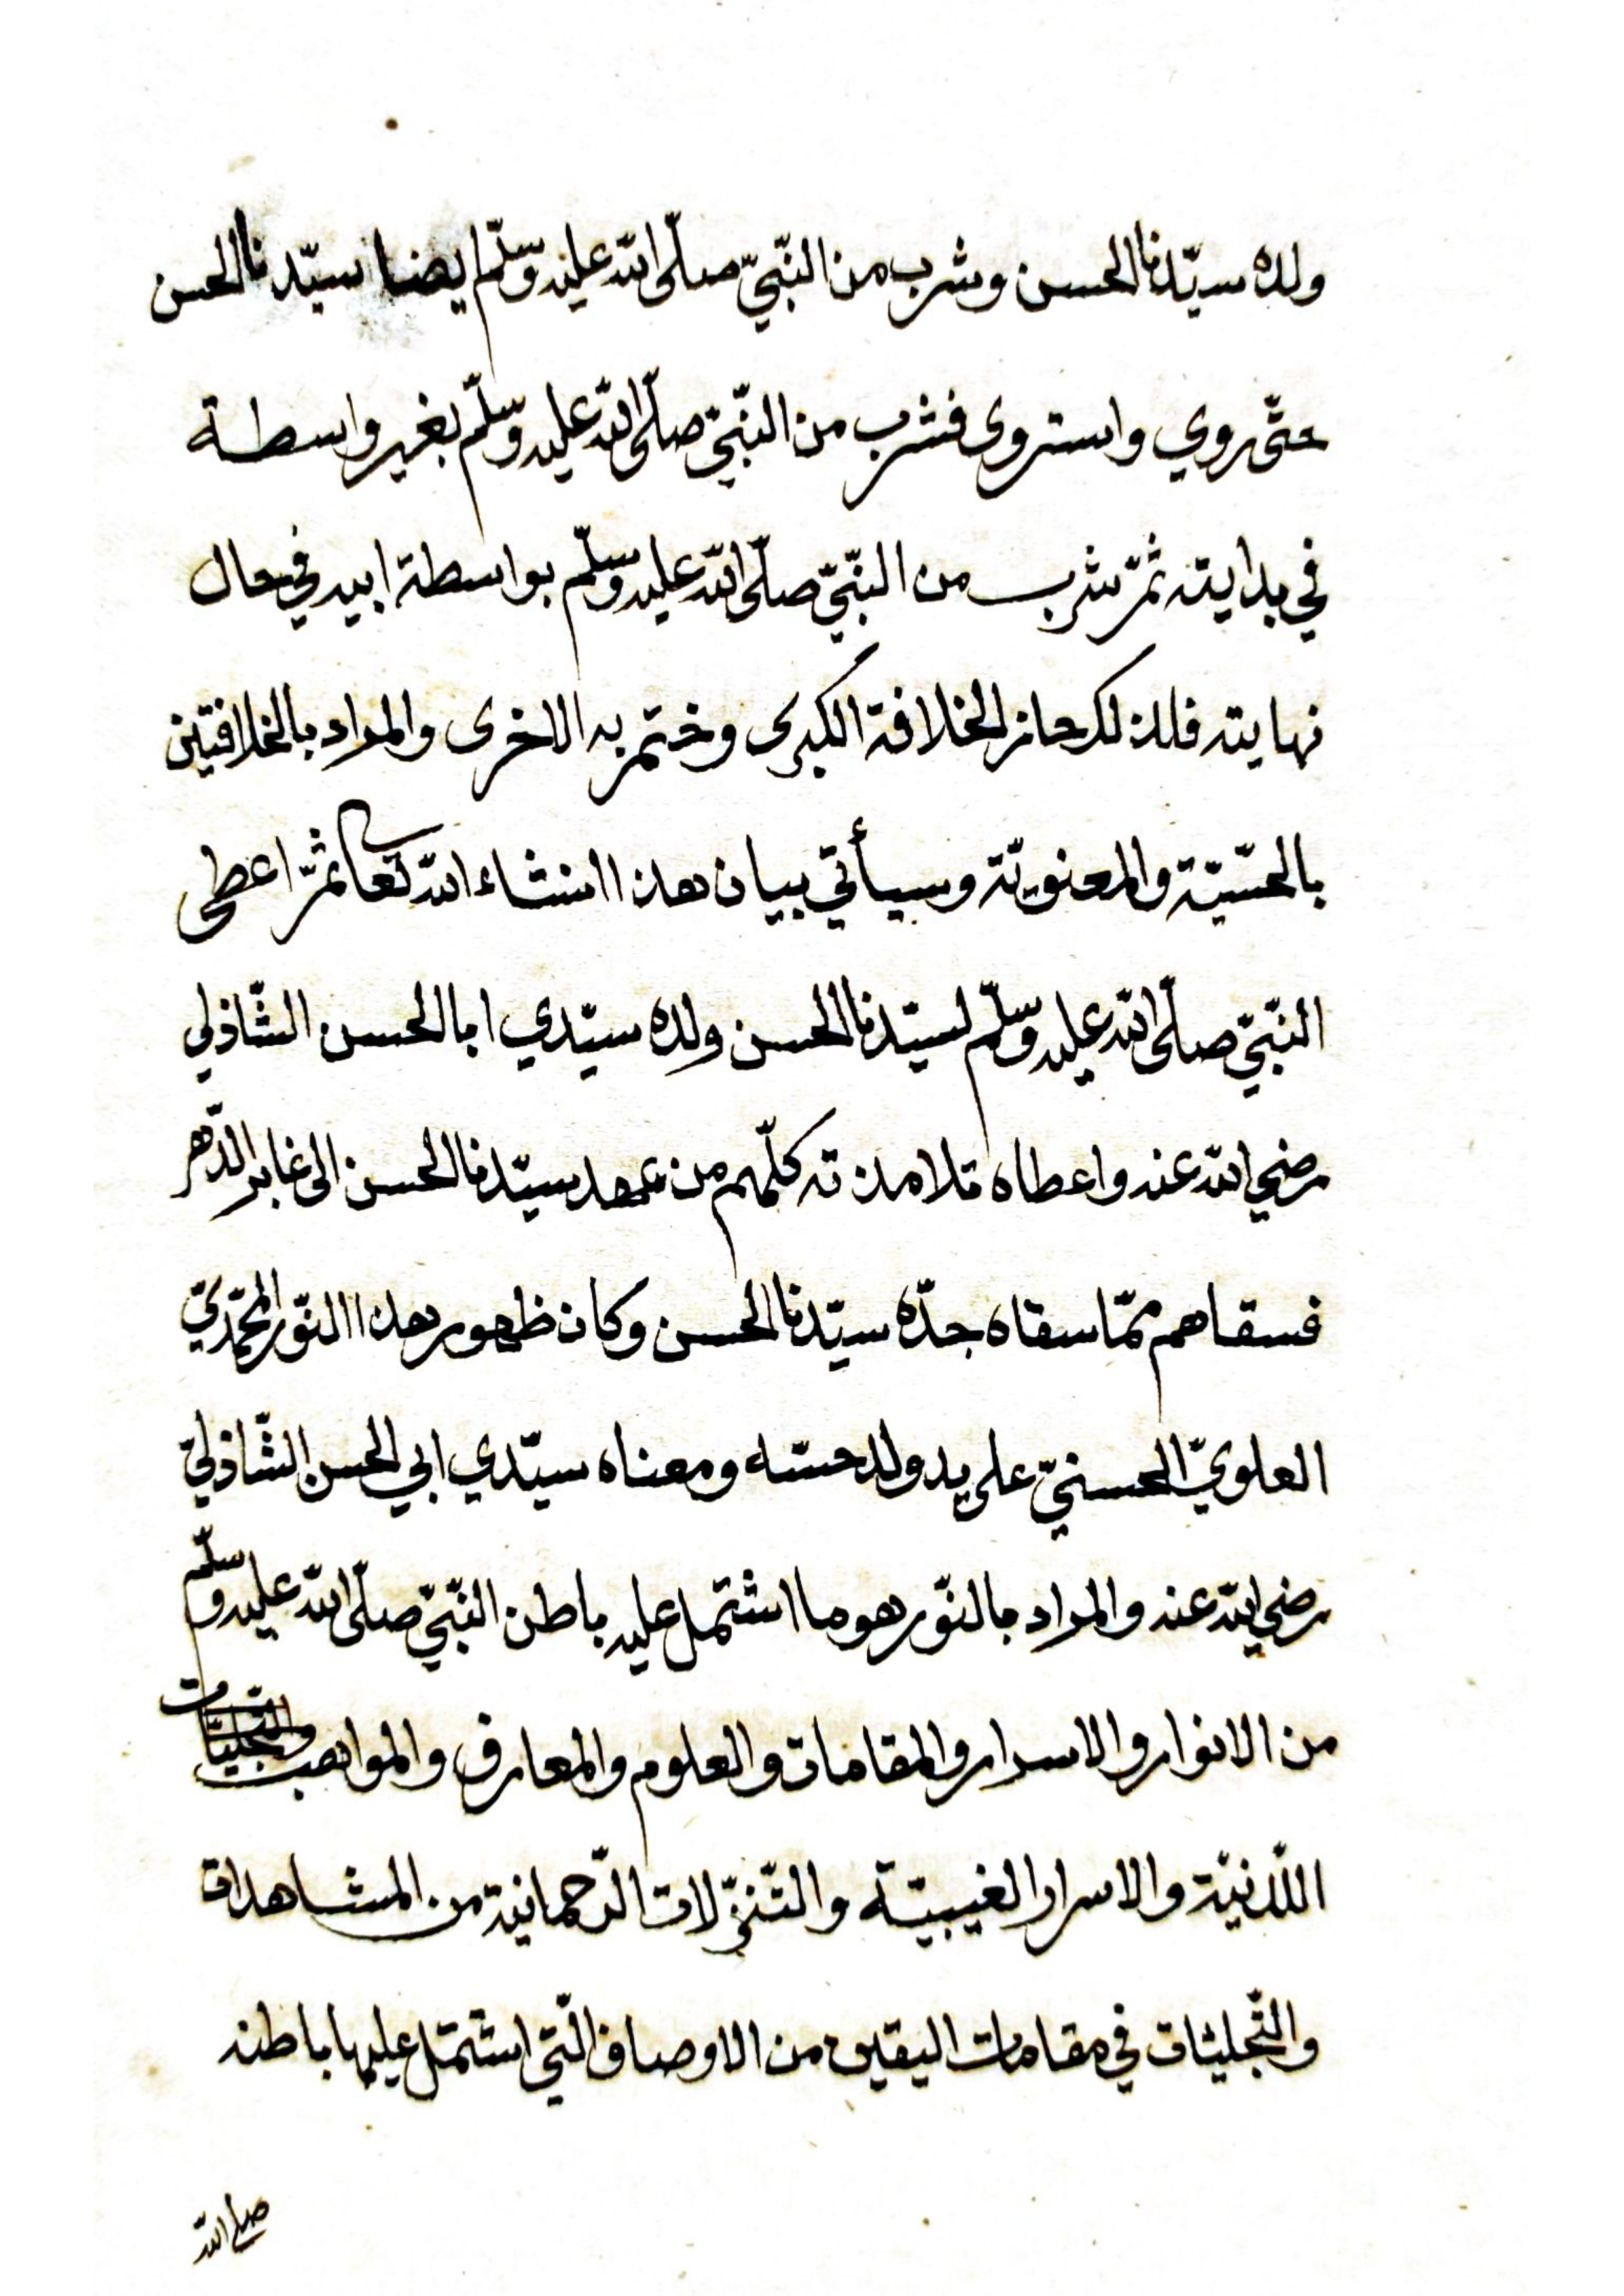 ولده سيّدنا الحسن وشرب من النّبيّ صلّى الله عليه وسلّم ايضا سيّدنا الحسن
حتّى روي واستروى فشرب من النّبيّ صلّى الله عليه وسلّم بغير واسطة
في بدايته ثمّ شرب من النّبيّ صلّى الله عليه وسلّم بواسطة ابيه في حال
نهايته فلذلك حاز الخلافة الكبرى وختم به الاخرى والمراد بالخلافتين
بالحسّيّة والمعنويّة وسيأتي بيان هذا انشاء الله تعا ثمّ اعطى
النّبيّ صلّى الله عليه وسلّم لسيّدنا الحسن ولده سيّدي ابا الحسن الشّاذلي
رضي الله عنه واعطاه تلامذته كلّهم من عهد سيّدنا الحسن الى غابر الدّهر
فسقاهم ممّا سقاه جدّه سيّدنا الحسن وكان ظهور هذا النّور المحمّديّ
العلويّ الحسنيّ على يد ولد حسّه ومعناه سيّدي ابي الحسن الشّاذليّ
رضي الله عنه والمراد بالنّور هو ما اشتمل عليه باطن النّبيّ صلّى الله عليه وسلّم
من الانوار والاسرار والمقامات والعلوم والمعارف والمواهب
اللّدنيّة والاسرار الغيبيّة والتّنزّلات الرّحمانية من المشاهدات
والتّجليات في مقامات اليقين من الاوصاف الّتي اشتمل عليها باطنه
صلى الله